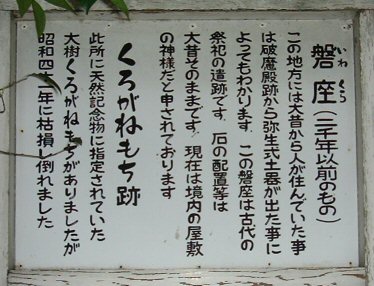 磐座(二千年以前のもの)
いわくら
この地方には大昔から人が住んでいた事
は破魔殿跡から弥生式土器が出た事に
よってもわかります この磐座は古代の
祭祀の遺跡です 石の配置等は
大昔そのままです 現在は境内の屋敷
の神様だと申されております
くろがねもち跡
此所に天然記念物に指定されていた
大樹くろがねもちがありましたが
昭和四十一年に枯損し倒れました